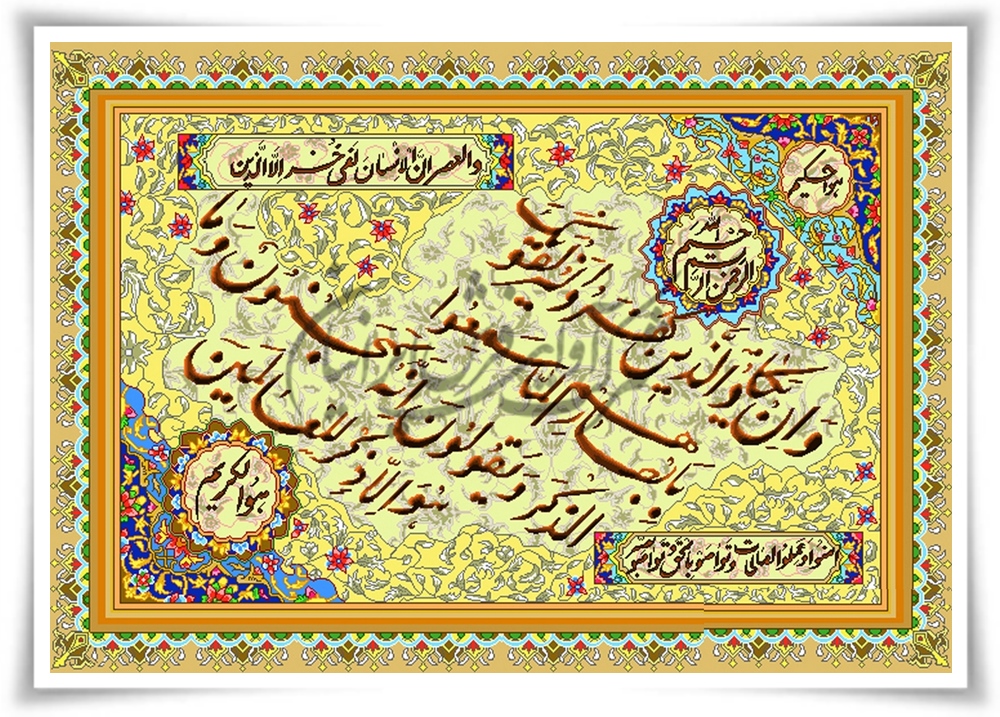 هوالحکیم
بسم الله الرحمن الرحیم
والعصر ان الانسان لفی خسر الا الذین
وان یکاد الذین کفروا لیزلقونک
بابصارهم لما سمعوا
الذکر و یقولون انه لمجنون وما
هو الا ذکر للعالمین
هوالکریم
امنوا و عملوا الصالحات و تواصوا بالحق و تواصوا بالصبر